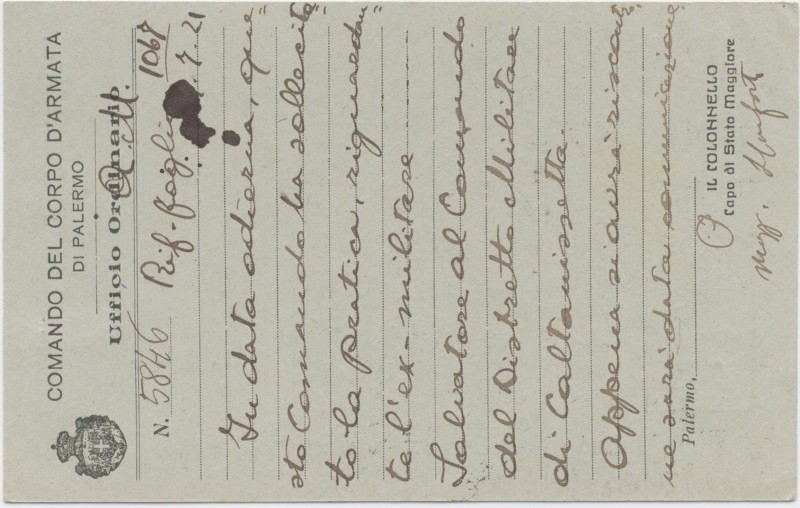 COMANDO DEL CORPO D'ARMATA
DI PALERMO
Ufficio Ordinario
N. 5846 Rif. foglio 1067
7.21
In data odierna, que=
sto Comando ha sollecita
to la pratica, riguardan=
te l'ex-militare
Salvatore al Comando
del Distretto Militare
di Caltanissetta.
Appena si avrà riscont=
ne sarà data comunicazione
Palermo,
IL COLONNELLO
Capo di Stato Maggiore